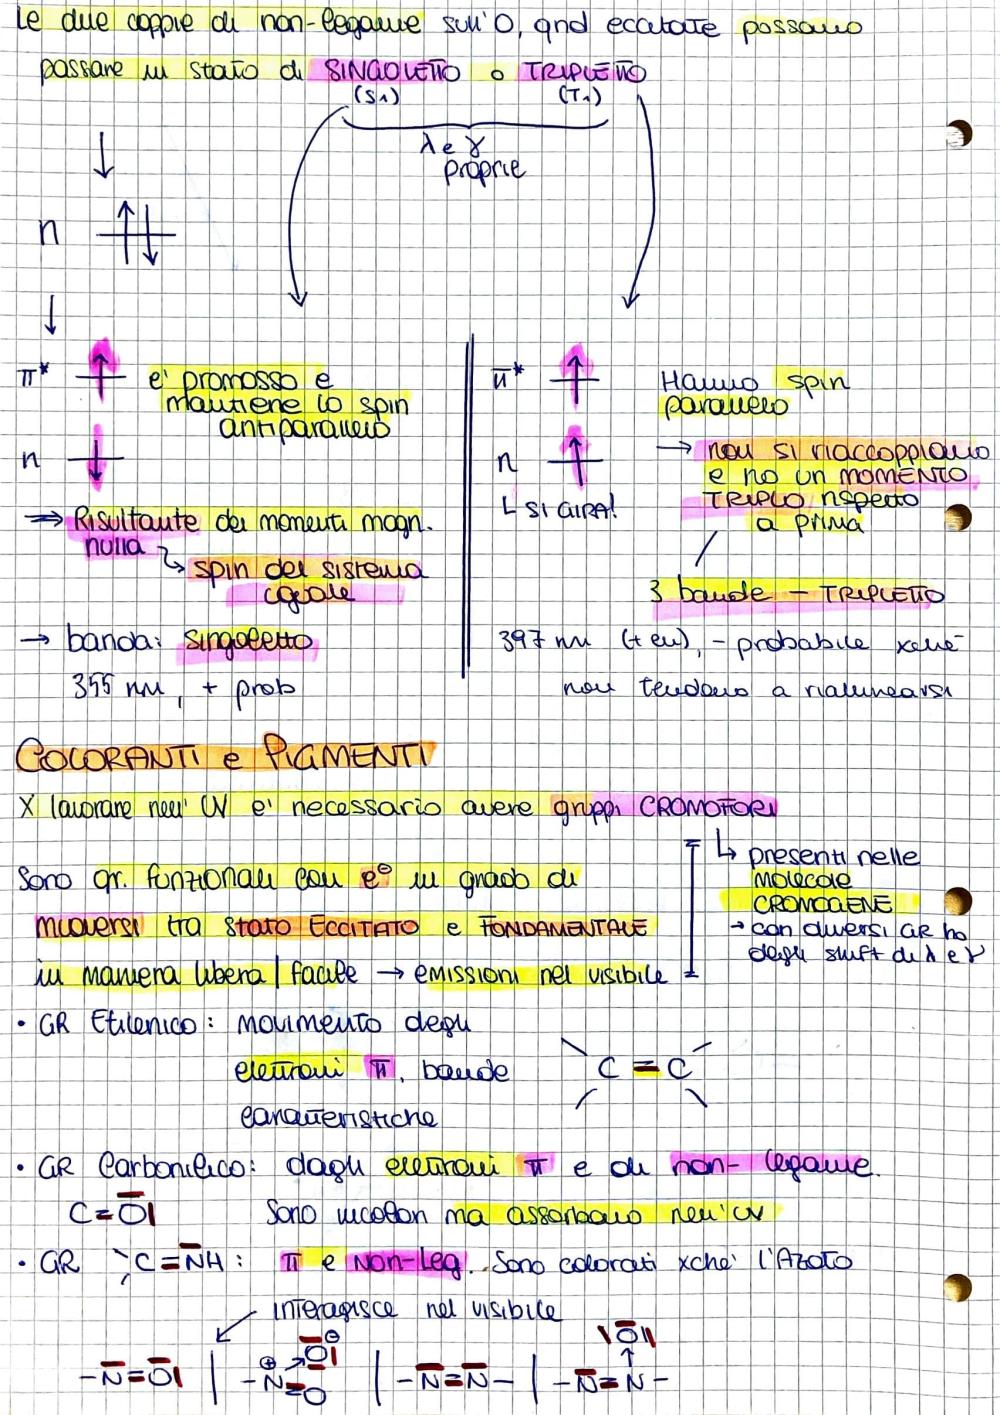 Le due coppie di non-legame sull'O, qnd eccitate possono
passare in stato di SINGOLETTO o TRIPLETTO
(S1) (T1)
λ e γ
proprie
n
π* e' promosso e
mantiene lo spin
antiparallelo
n
⇒ Risultante dei momenti magn.
nulla
spin del sistema
uguale
→ banda: singoletto
355 nm, + prob
π* Hanno spin
parallelo
n → non si riaccoppiano
e ho un MOMENTO
TRIPLO rispetto
a prima
SI GIRA!
3 bande - TRIPLETTO
397 nm (+ en), - probabile xchè
non tendono a riallinearsi
COLORANTI e PIGMENTI
X lavorare nell' UV e' necessario avere gruppi CROMOFORI
↳ presenti nelle
molecole
CROMOGENE
→ con diversi GR ho
degli shift di λ e γ
Sono gr. funzionali con e⊖ in grado di
muoversi tra stato ECCITATO e FONDAMENTALE
in maniera libera/facile → emissioni nel visibile
• GR Etilenico: movimento degli
elettroni π, bande
caratteristiche
C=C
• GR Carbonilico: dagli elettroni π e di non-legame.
C=O Sono incolori ma assorbono nell'UV
• GR C=NH: π e non-leg. Sono colorati xchè l'Azoto
interagisce nel visibile
⊖
O
⊕
-N=O | -N=O | -N=N- | -N=N-
O